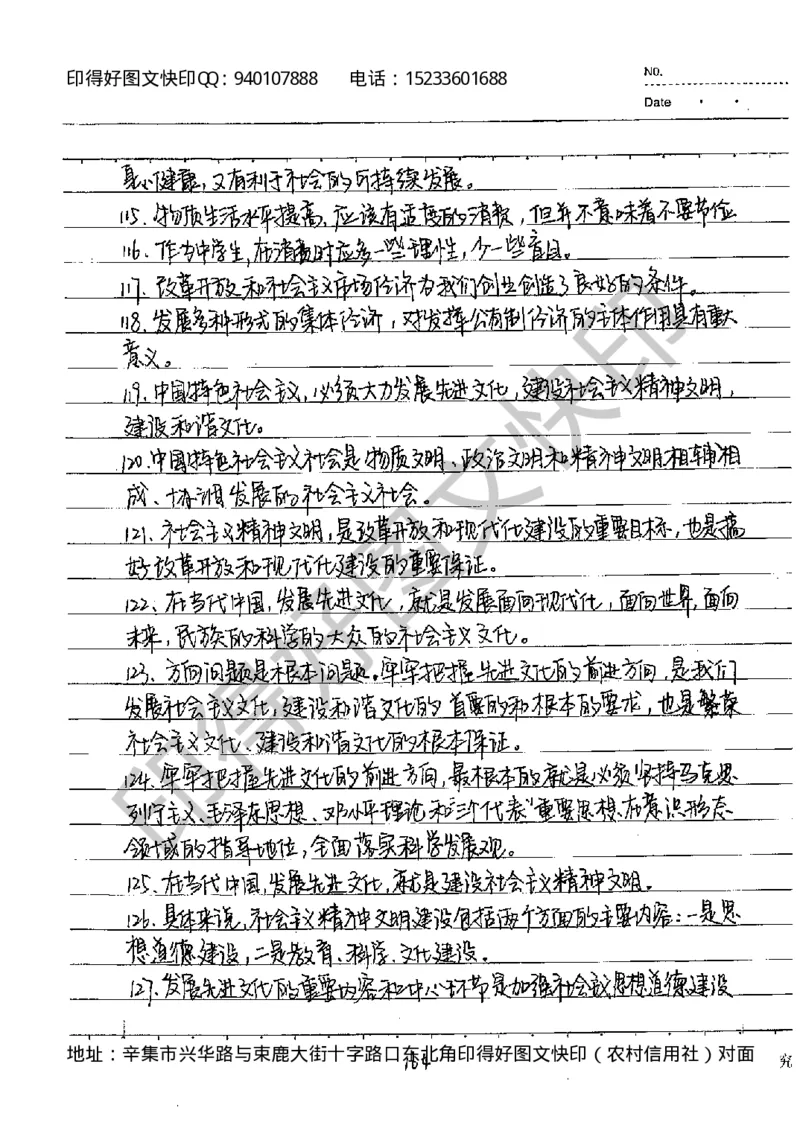 印得好图文快印QQ：940107888 电话：15233601688
No.
Date
身心健康，又有利于社会的可持续发展。
115、物质生活水平提高，应该有适度的消费，但并不意味着不要节俭
116、作为中学生，在消费时应多一些理性，少一些盲目。
117、改革开放和社会主义市场经济为我们创业创造了良好的条件。
118、发展多种形式的集体经济，对发挥公有制经济的主体作用具有重大
意义。
119、中国特色社会主义，必须大力发展先进文化，建设社会主义精神文明，
建设和谐文化。
120、中国特色社会主义社会是物质文明、政治文明和精神文明相辅相
成、协调发展的社会主义社会。
121、社会主义精神文明，是改革开放和现代化建设的重要目标，也是搞
好改革开放和现代化建设的重要保证。
122、在当代中国，发展先进文化，就是发展面向现代化，面向世界，面向
未来，民族的科学的大众的社会主义文化。
123、方向问题是根本问题。牢牢把握先进文化的前进方向，是我们
发展社会主义文化，建设和谐文化的首要的和根本的要求，也是繁荣
社会主义文化、建设和谐文化的根本保证。
124、牢牢把握先进文化的前进方向，最根本的就是必须坚持马克思
列宁主义、毛泽东思想、邓小平理论和“三个代表”重要思想在意识形态
领域的指导地位，全面落实科学发展观。
125、在当代中国，发展先进文化，就是建设社会主义精神文明。
126、具体来说，社会主义精神文明建设包括两个方面的主要内容：一是思
想道德建设，二是教育、科学、文化建设。
127、发展先进文化的重要内容和中心环节是加强社会主义思想道德建设
地址：辛集市兴华路与束鹿大街十字路口东北角印得好图文快印（农村信用社）对面
184
究
印得好图文快印